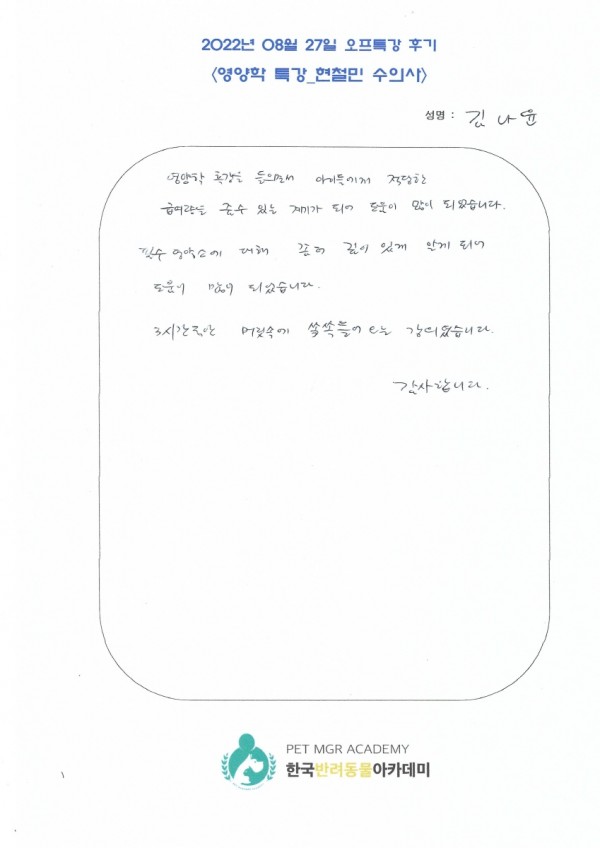 2022년 08월 27일 오프특강 후기
<영양학 특강_현철민 수의사>
성명 : 김나윤
영양학 특강을 들으면서 아이들에게 적당한
급여량을 줄수 있는 계기가 되어 도움이 많이 되었습니다.
필수 영양소에 대해 좀더 깊이 있게 알게 되어
도움이 많이 되었습니다.
3시간동안 머릿속에 쏙쏙들어오는 강의였습니다.
감사합니다.
PET MGR ACADEMY
한국반려동물아카데미